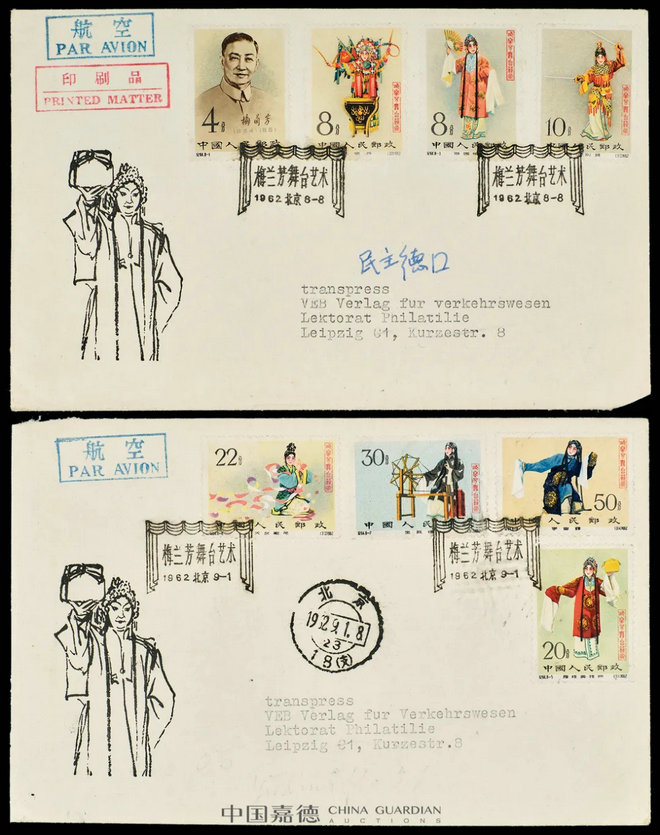 航空
PAR AVION
印刷品
PRINTED MATTER
4分
8分
8分
10分
中國人民郵政
中國人民郵政
中國人民郵政
中國人民郵政
梅兰芳舞台艺术
1962 北京 8-8
梅兰芳舞台艺术
1962 北京 8-8
民主德口
transpress
VEB Verlag fur verkehrswesen
Lektorat Philatilie
Leipzig C1, Kurzestr. 8
航空
PAR AVION
22分
30分
50分
中國人民郵政
中國人民郵政
中國人民郵政
梅兰芳舞台艺术
1962 北京 9-1
梅兰芳舞台艺术
1962 北京 9-1
北京
1962.9.1.8
23
18(支)
20分
中國人民郵政
transpress
VEB Verlag fur Verkehrswesen
Lektorat Philatilie
Leipzig C1, Kurzestr.8
中国嘉德 CHINA GUARDIAN
AUCTIONS